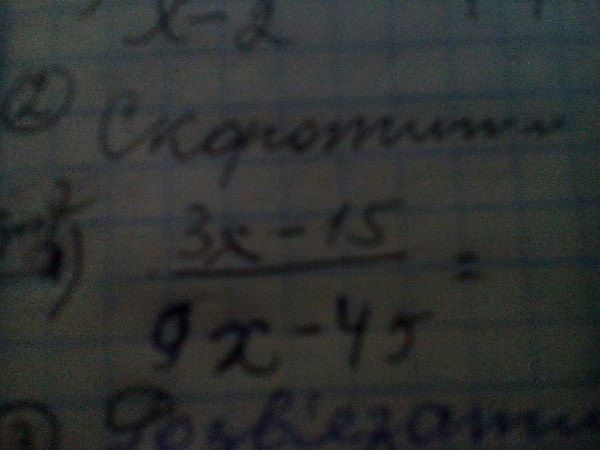 x-2
② Скоротити
3x-15
1) ――― =
9x-45
Розв'язати